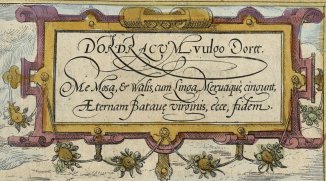 DORDRACUM vulgo Dortt.
Me Mosa, & Walis, cum Linga, Meruaque, cingunt,
Æternam Bataue virginis, ecce, fidem.